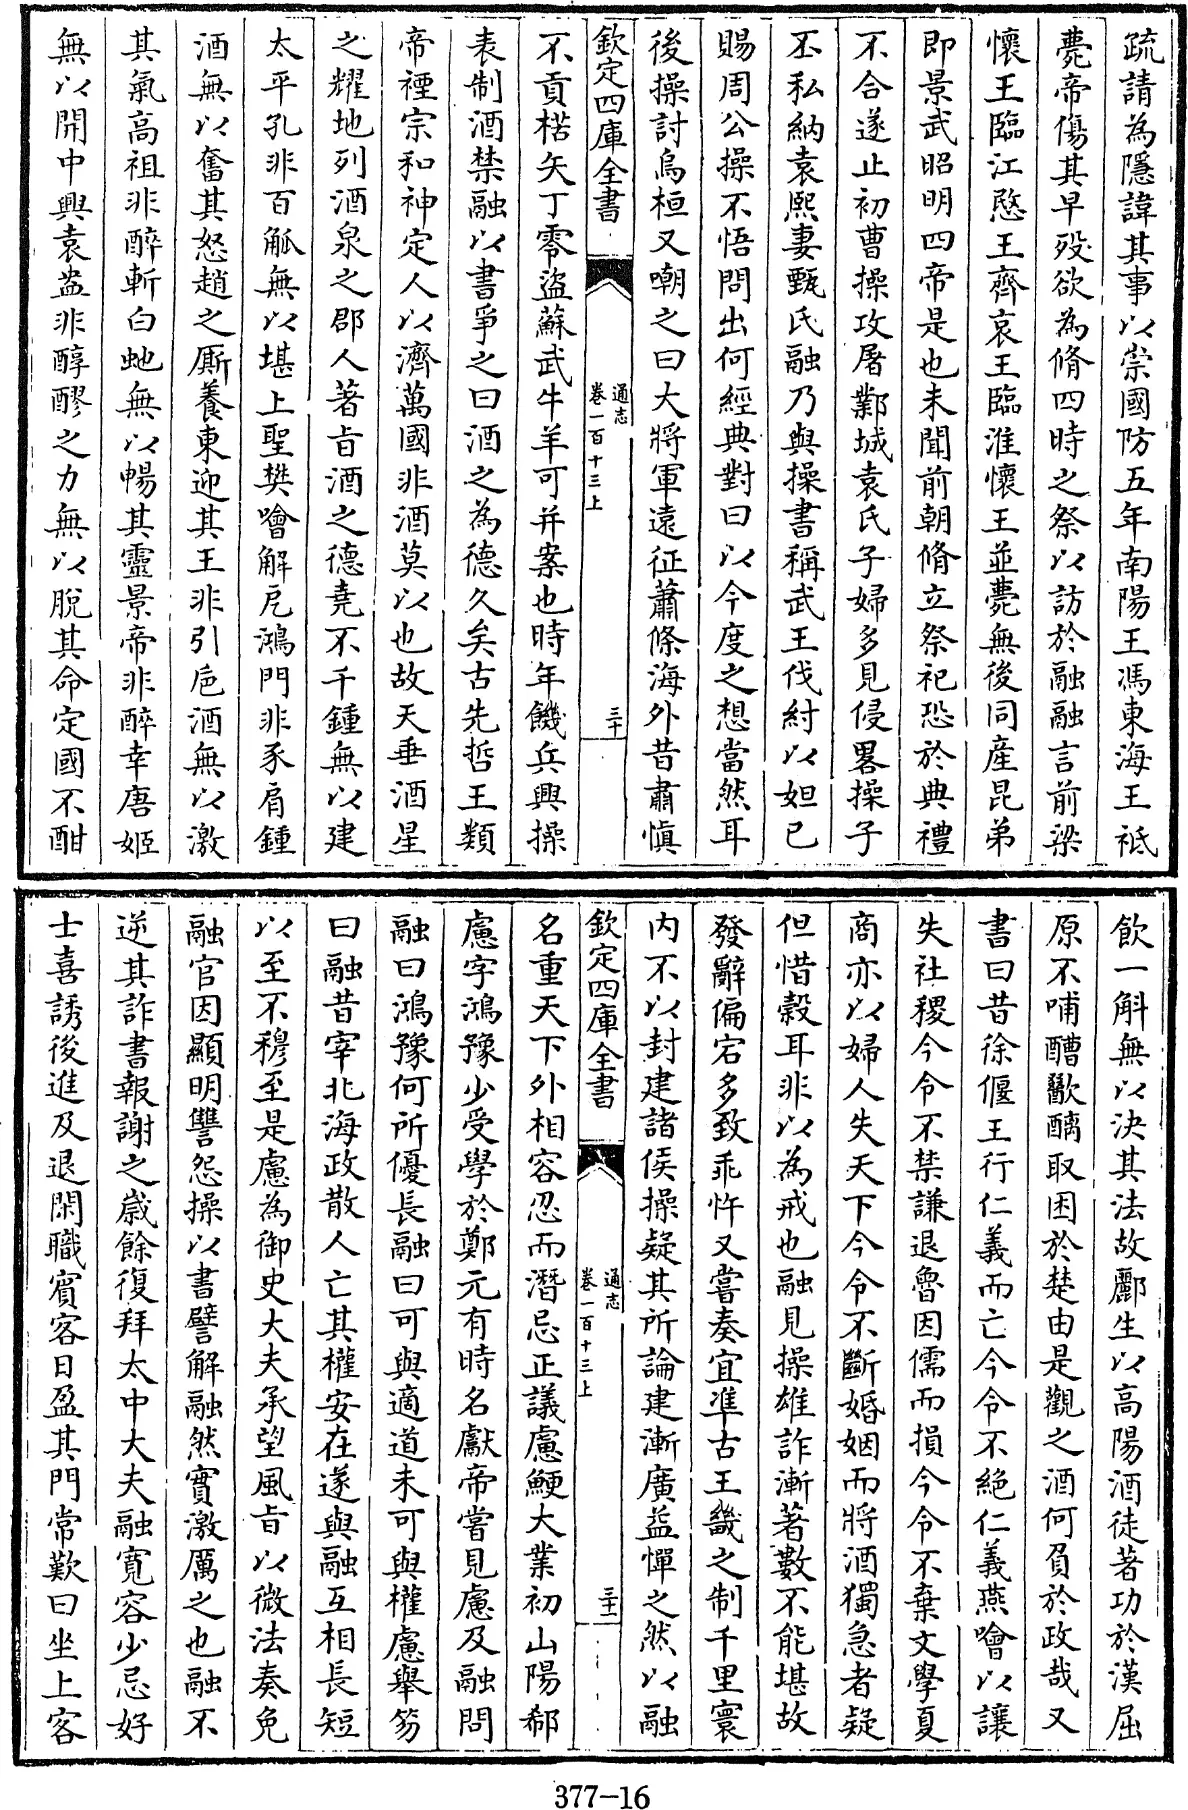 疏請為隱諱其事以崇國防五年南陽王馮東海王祗
薨帝傷其早歿欲為脩四時之祭以訪於融融言前梁
懷王臨江愍王齊哀王臨淮懷王並薨無後同産昆弟
即景武昭明四帝是也未聞前朝脩立祭祀恐於典禮
不合遂止初曹操攻屠鄴城袁氏子婦多見侵畧操子
丕私納袁熙妻甄氏融乃與操書稱武王伐紂以妲己
賜周公操不悟問出何經典對曰以今度之想當然耳
後操討烏桓又嘲之曰大將軍遠征蕭條海外昔肅慎
欽定四庫全書
通志
卷一百十三上
三十
不貢楛矢丁零盜蘇武牛羊可并案也時年饑兵興操
表制酒禁融以書爭之曰酒之為德久矣古先哲王類
帝禋宗和神定人以濟萬國非酒莫以也故天垂酒星
之耀地列酒泉之郡人著旨酒之德堯不千鍾無以建
太平孔非百觚無以堪上聖樊噲解卮鴻門非豕肩鍾
酒無以奮其怒趙之厮養東迎其王非引卮酒無以激
其氣高祖非醉斬白虵無以暢其靈景帝非醉幸唐姬
無以開中興袁盎非醇醪之力無以脫其命定國不酣
飲一斛無以決其法故酈生以高陽酒徒著功於漢屈
原不哺醩歠醨取困於楚由是觀之酒何負於政哉又
書曰昔徐偃王行仁義而亡今令不絕仁義燕噲以讓
失社稷今令不禁謙退魯因儒而損今令不棄文學夏
商亦以婦人失天下今令不斷婚姻而將酒獨急者疑
但惜穀耳非以為戒也融見操雄詐漸著數不能堪故
發辭偏宕多致乖忤又嘗奏宜準古王畿之制千里寰
內不以封建諸侯操疑其所論建漸廣益憚之然以融
欽定四庫全書
通志
卷一百十三上
三十一
名重天下外相容忍而潛忌正議慮鯁大業初山陽郗
慮字鴻豫少受學於鄭元有時名獻帝嘗見慮及融問
融曰鴻豫何所優長融曰可與適道未可與權慮舉笏
曰融昔宰北海政散人亡其權安在遂與融互相長短
以至不穆至是慮為御史大夫承望風旨以微法奏免
融官因顯明讐怨操以書譬解融然實激厲之也融不
逆其詐書報謝之歲餘復拜太中大夫融寬容少忌好
士喜誘後進及退閑職賓客日盈其門常歎曰坐上客
377-16